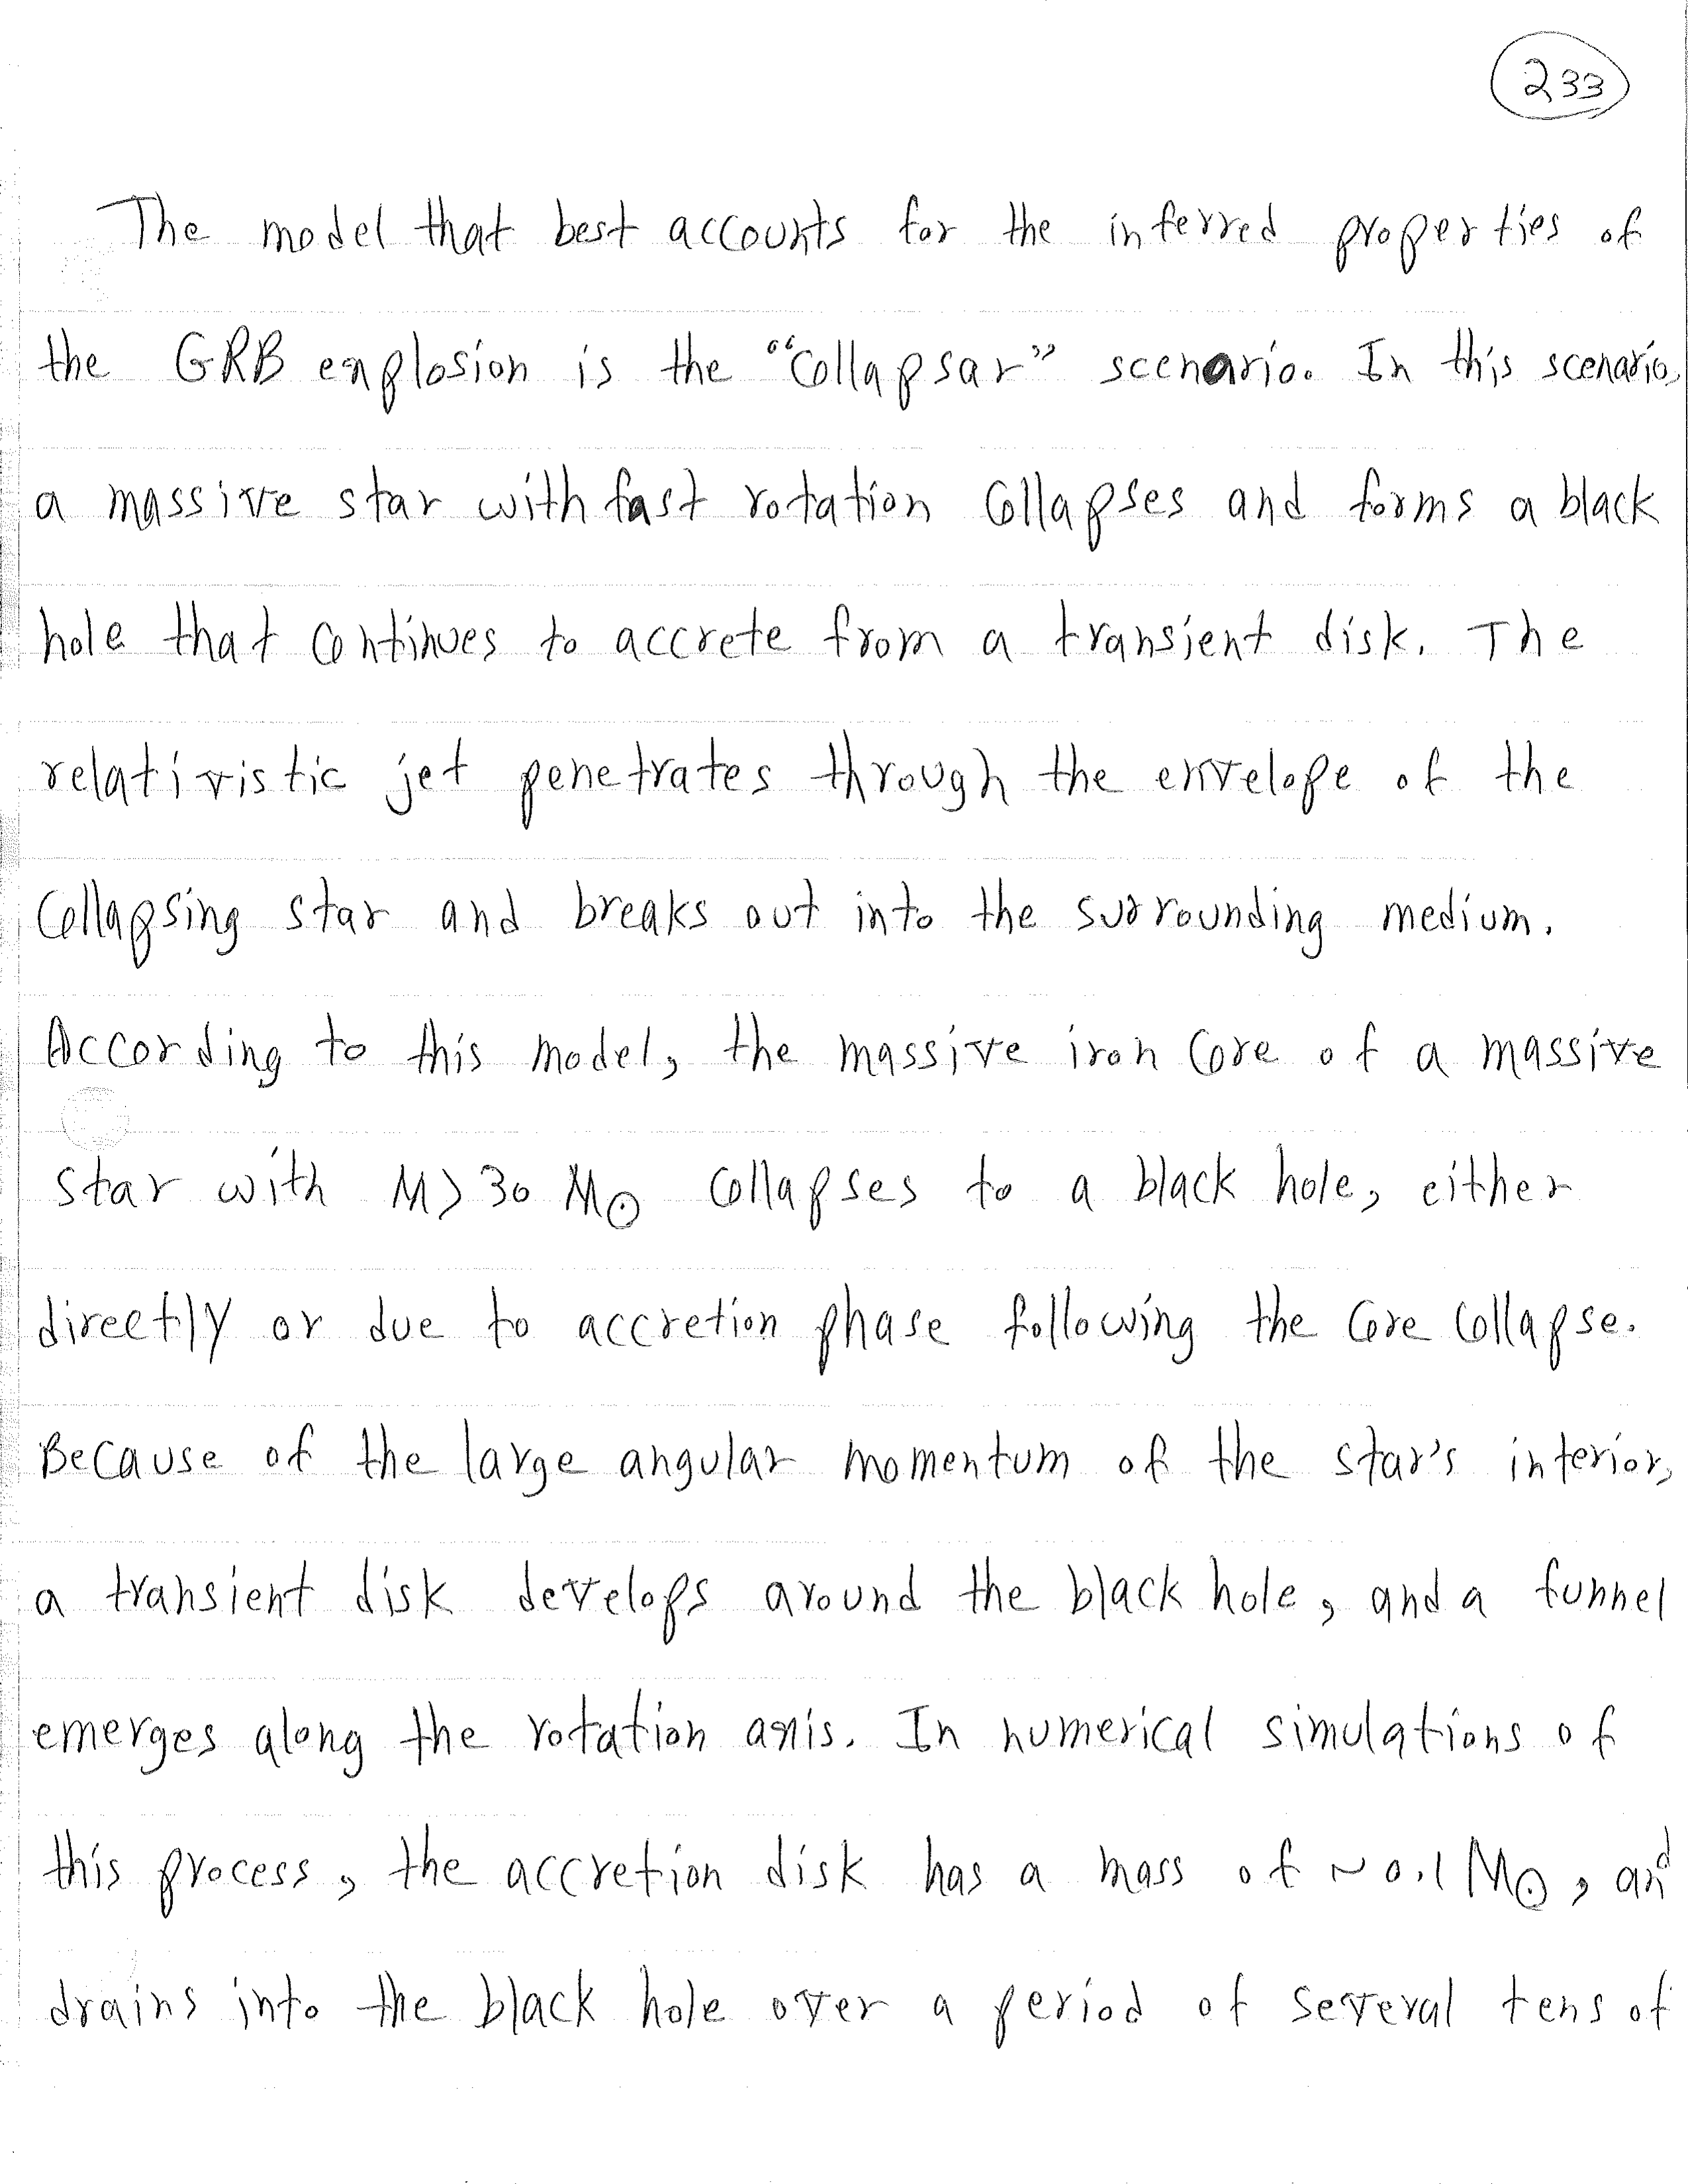 233
The model that best accounts for the inferred properties of
the GRB explosion is the "collapsar" scenario. In this scenario,
a massive star with fast rotation collapses and forms a black
hole that continues to accrete from a transient disk. The
relativistic jet penetrates through the envelope of the
collapsing star and breaks out into the surrounding medium.
According to this model, the massive iron core of a massive
star with M > 30 M⊙ collapses to a black hole, either
directly or due to accretion phase following the core collapse.
Because of the large angular momentum of the star's interior,
a transient disk develops around the black hole, and a funnel
emerges along the rotation axis. In numerical simulations of
this process, the accretion disk has a mass of ~ 0.1 M⊙, and
drains into the black hole over a period of several tens of